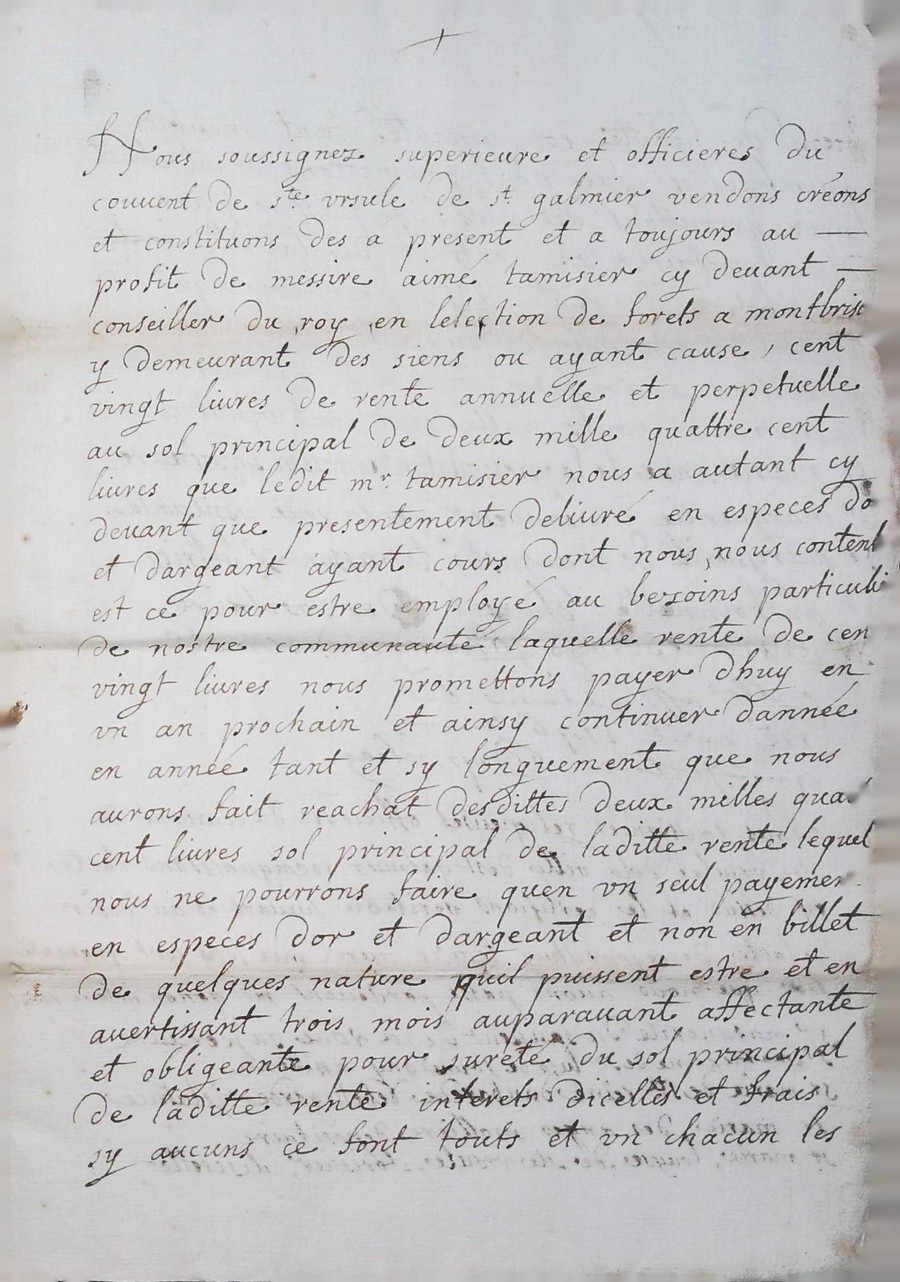 Nous soussignez superieure et officieres du
couuent de ste vrsule de st galmier vendons créons
et constituons des a present et a toujours au —
profit de messire aimé tamisier cy deuant —
conseiller du roy en lelection de forets a montbris
y demeurant des siens ou ayant cause, cent
vingt liures de rente annuelle et perpetuelle
au sol principal de deux mille quattre cent
liures que ledit mr. tamisier nous a autant cy
deuant que presentement deliuré en especes do
et dargeant ayant cours dont nous nous content
est ce pour estre employé au bezoins particuli
de nostre communauté laquelle rente de cen
vingt liures nous promettons payer dhuy en
vn an prochain et ainsy continuer dannée
en année tant et sy longuement que nous
aurons fait reachat desdittes deux milles qua
cent liures sol principal de laditte rente lequel
nous ne pourrons faire quen vn seul payemen
en especes dor et dargeant et non en billet
de quelques nature quil puissent estre et en
auertissant trois mois auparauant affectante
et obligeante pour sureté du sol principal
de laditte rente interets dicelles et frais
sy aucuns ce font touts et vn chacun les